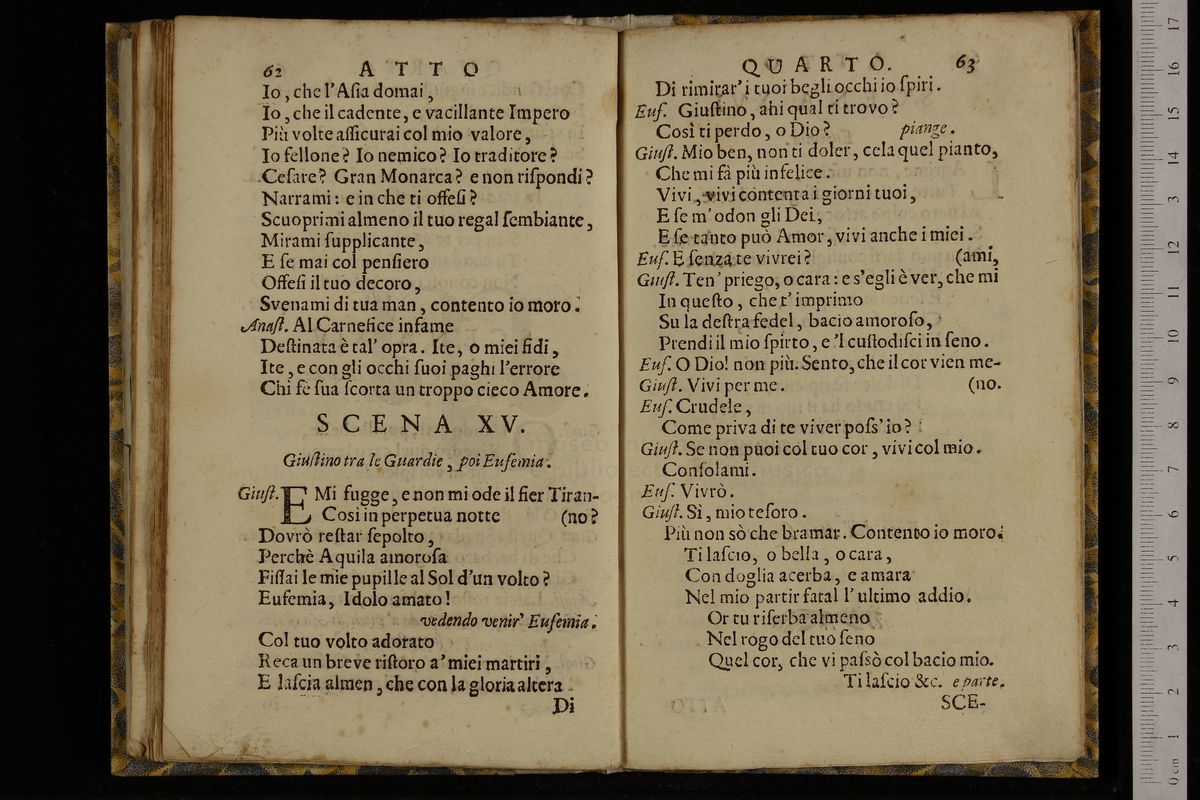 62 ATTO
Io, che l'Aſia domai,
Io, che il cadente, e vacillante Impero
Più volte aſſicurai col mio valore,
Io fellone? Io nemico? Io traditore?
Ceſare? Gran Monarca? e non riſpondi?
Narrami: e in che ti offeſi?
Scuoprimi almeno il tuo regal ſembiante,
Mirami ſupplicante,
E ſe mai col penſiero
Offeſi il tuo decoro,
Svenami di tua man, contento io moro.
Anaſt. Al Carnefice infame
Deſtinata è tal' opra. Ite, o miei fidi,
Ite, e con gli occhi ſuoi paghi l'errore
Chi fè ſua ſcorta un troppo cieco Amore.
SCENA XV.
Giuſtino tra le Guardie, poi Eufemia.
Giuſt. E Mi fugge, e non mi ode il fier Tiran-
Così in perpetua notte (no?
Dovrò reſtar ſepolto,
Perchè Aquila amoroſa
Fiſſai le mie pupille al Sol d'un volto?
Eufemia, Idolo amato!
vedendo venir' Eufemia.
Col tuo volto adorato
Reca un breve riſtoro a' miei martiri,
E laſcia almen, che con la gloria altera
Di
QUARTO. 63
Di rimirar' i tuoi begli occhi io ſpiri.
Euf. Giuſtino, ahi qual ti trovo?
Così ti perdo, o Dio? piange.
Giuſt. Mio ben, non ti doler, cela quel pianto,
Che mi fà più infelice.
Vivi, vivi contenta i giorni tuoi,
E ſe m'odon gli Dei,
E ſe tanto può Amor, vivi anche i miei.
Euf. E ſenza te vivrei? (ami,
Giuſt. Ten' priego, o cara: e s'egli è ver, che mi
In queſto, che t'imprimo
Su la deſtra fedel, bacio amoroſo,
Prendi il mio ſpirto, e 'l cuſtodiſci in ſeno.
Euf. O Dio! non più. Sento, che il cor vien me-
Giuſt. Vivi per me. (no.
Euf. Crudele,
Come priva di te viver poſs'io?
Giuſt. Se non puoi col tuo cor, vivi col mio.
Conſolami.
Euf. Vivrò.
Giuſt. Sì, mio teſoro.
Più non sò che bramar. Contento io moro.
Ti laſcio, o bella, o cara,
Con doglia acerba, e amara
Nel mio partir fatal l'ultimo addio.
Or tu riſerba almeno
Nel rogo del tuo ſeno
Quel cor, che vi paſsò col bacio mio.
Ti laſcio &c. e parte.
SCE-
0 cm 1 2 3 4 5 6 7 8 9 10 11 12 13 14 15 16 17